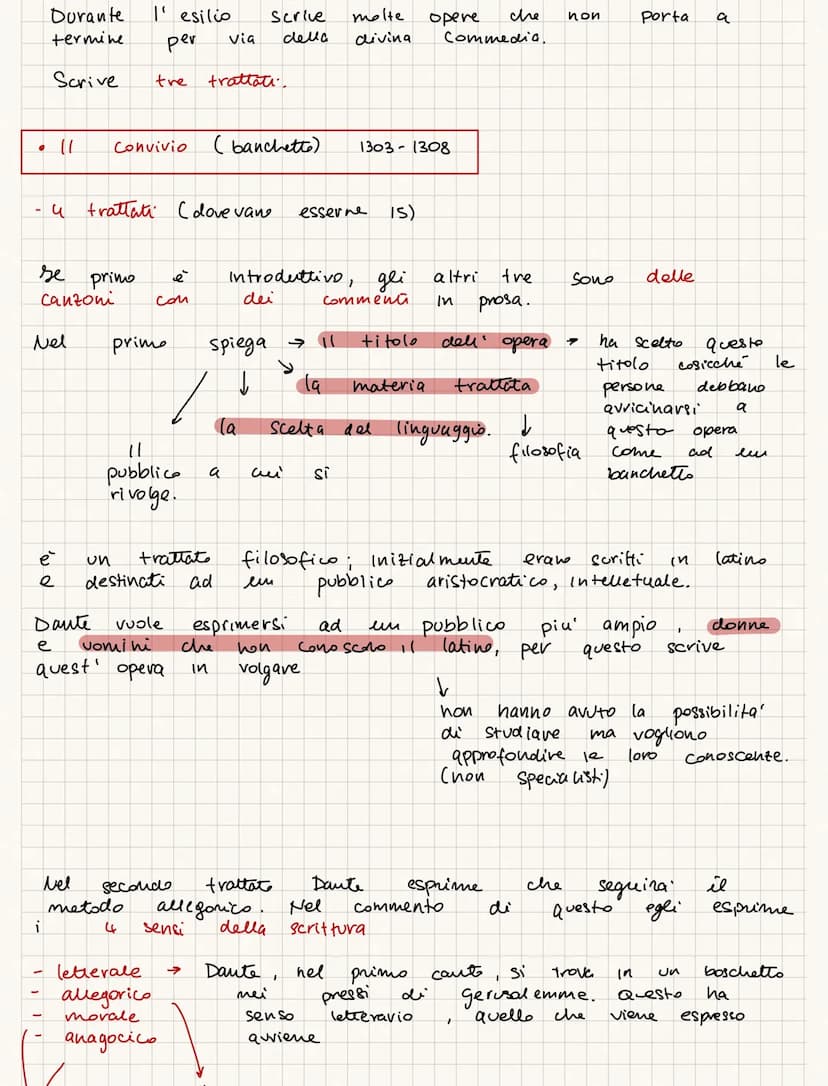 Durante l'esilio scrive molte opere che non porta a
termine per via della divina Commedia.
Scrive tre trattati.
• Il Convivio (banchetto) 1303-1308
- 4 trattati (dovevano esserne 15)
Se primo è introduttivo, gli altri tre sono delle
canzoni con dei commenti in prosa.
Nel primo spiega → il titolo dell'opera → ha scelto questo
titolo cosicché le
la materia trattata persone debbano
avvicinarsi a
la scelta del linguaggio. ↓ questo opera
filosofia come ad un
banchetto
Il
pubblico a cui si
rivolge.
è un trattato filosofico; inizialmente erano scritti in latino
e destinati ad un pubblico aristocratico, intelletuale.
Dante vuole esprimersi ad un pubblico piu' ampio, donne
e uomini che non conoscono il latino, per questo scrive
quest'opera in volgare
↓
non hanno avuto la possibilita'
di studiare ma vogliono
approfondire le loro conoscente.
(non specialisti)
Nel secondo trattato Dante esprime che seguira' il
metodo allegorico. Nel commento di questo egli esprime
i 4 sensi della scrittura
- letterale → Dante, nel primo canto, si trova in un boschetto
- allegorico nei pressi di Gerusalemme. Questo ha
- morale senso letterario, quello che viene espresso
- anagocico avviene